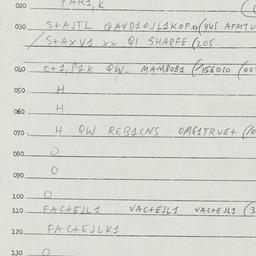 020 PARI,K
030 S+AJTL QAVD1OJL1KOP» (445 AFMTU
/S+AXV1 xx QI SHAPFE (205
040 C+1,P1K QW. MAMBOB1 (/156010 (00
050 H
060 H
070 H QW REB1CNS OMG1TRUG+ (10
080 O
090 O
100 O
110 FAC+EJL1 VAC+EJL1 VAC+EJL1 (3
120 FAC+EJLK1
130 O